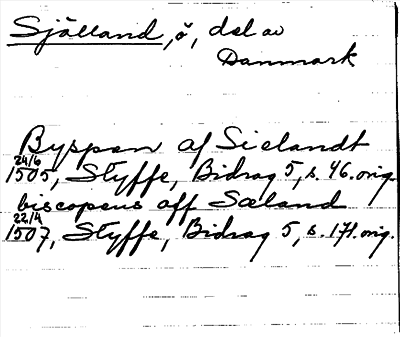 Själland, ö, del av
Danmark
Byspen af Sielandt
24/6
1505, Styffe, Bidrag 5, s. 46. orig.
biscopens aff Sæland
22/4
1507, Styffe, Bidrag 5, s. 171. orig.